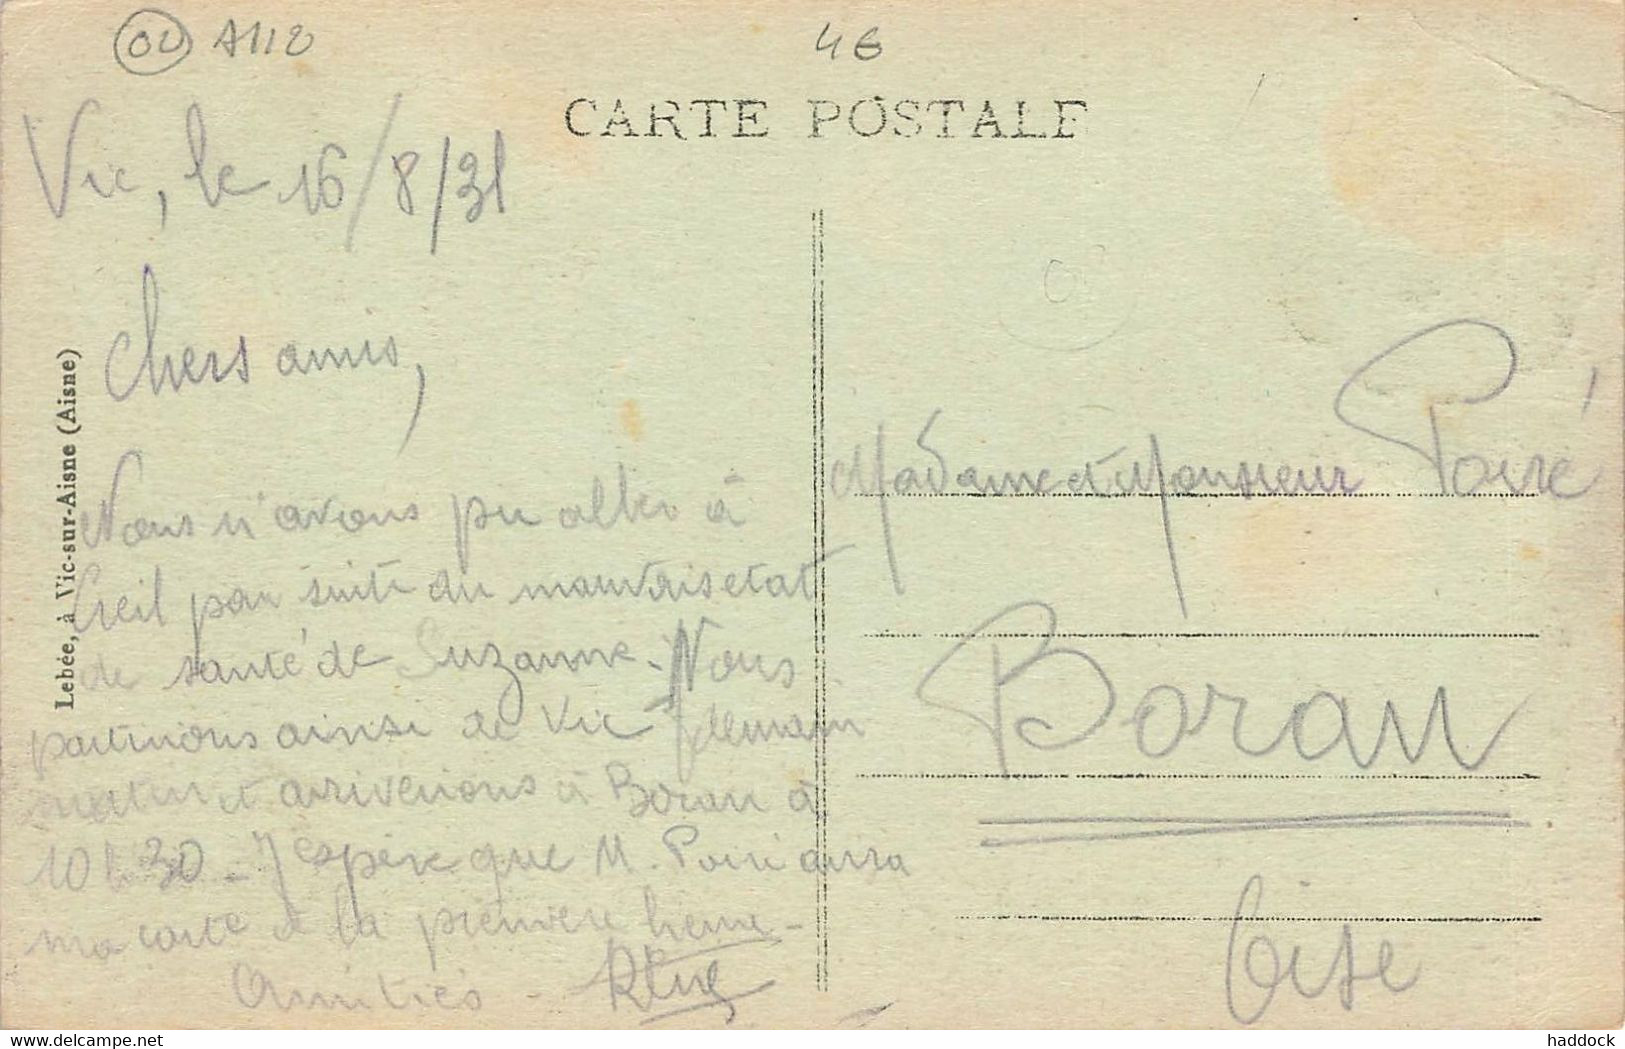 02 A112
4€
CARTE POSTALE
Vic, le 16/8/31
Chers amis,
Nous n'avons pu aller à
Creil par suite du mauvais etat
de santé de Suzanne. Nous
partirons ainsi de Vic demain
matin et arriverons à Boran à
10h30 - J'espère que M. Poiré aura
ma carte à la première heure -
Amitiés -
Lebée, à Vic-sur-Aisne (Aisne)
Madame et Monsieur Poiré
Boran
Oise
haddock
delcampe.net